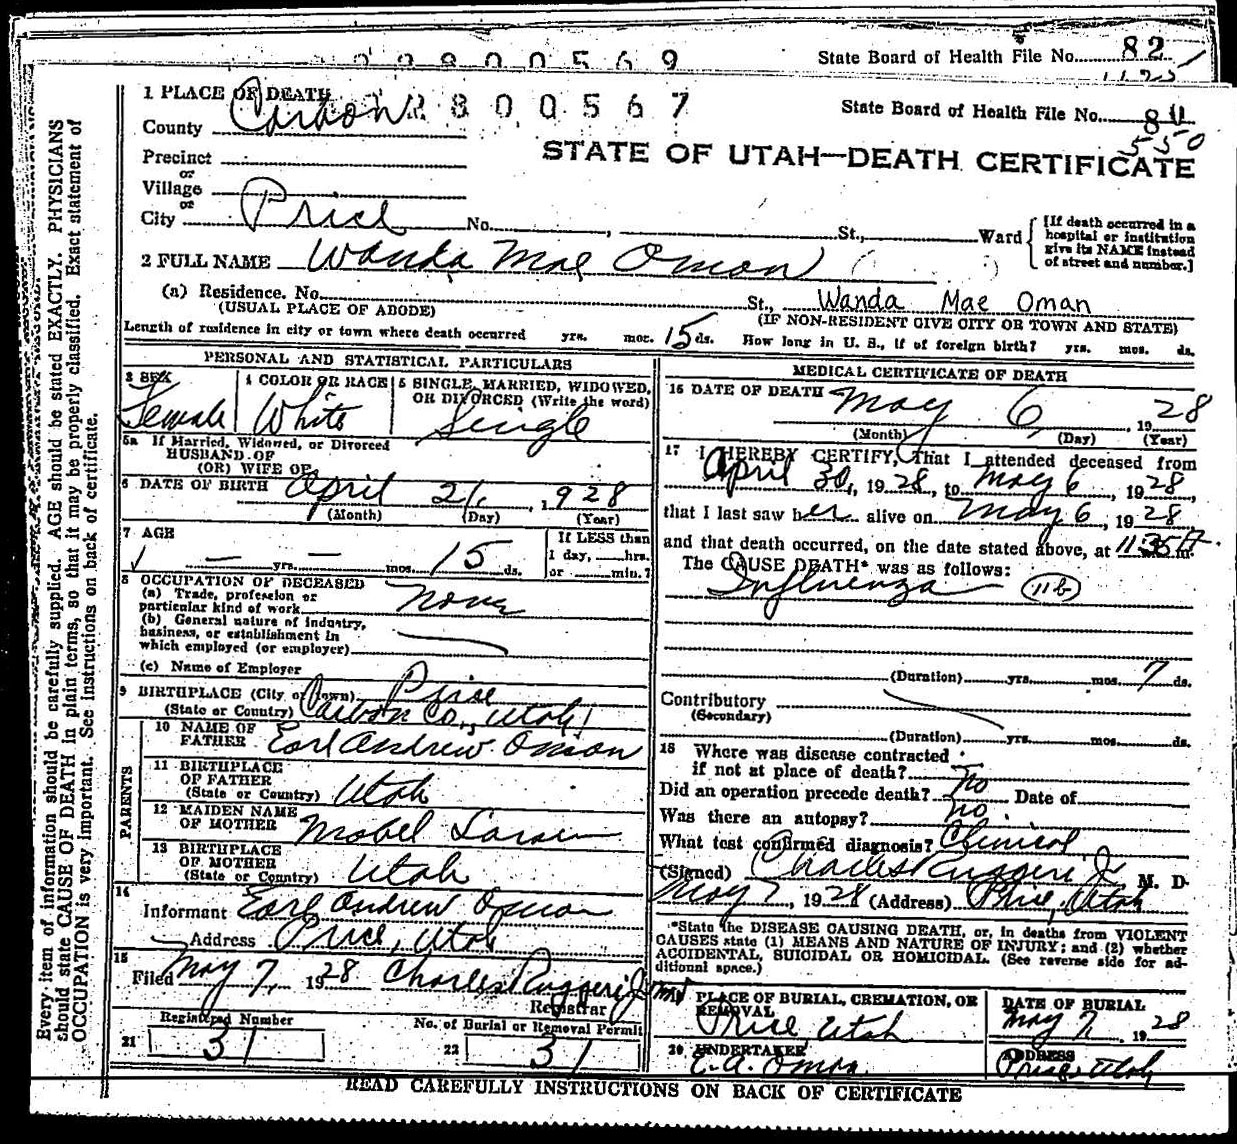 2 8 0 0 5 6 9 State Board of Health File No. 82
1 PLACE OF DEATH 2 8 0 0 5 6 7 State Board of Health File No. 80
County Carbon 550
STATE OF UTAH—DEATH CERTIFICATE
Precinct
or
Village
or
City Price No. , St., Ward {[If death occurred in a
hospital or institution
give its NAME instead
of street and number.]
2 FULL NAME Wanda Mae Oman
(a) Residence. No. St., Wanda Mae Oman
(USUAL PLACE OF ABODE) (IF NON-RESIDENT GIVE CITY OR TOWN AND STATE)
Length of residence in city or town where death occurred yrs. mos. 15 ds. How long in U. S., if of foreign birth? yrs. mos. ds.
PERSONAL AND STATISTICAL PARTICULARS
3 SEX 4 COLOR OR RACE 5 SINGLE, MARRIED, WIDOWED,
OR DIVORCED (Write the word)
Female White Single
5a If Married, Widowed, or Divorced
HUSBAND OF
(OR) WIFE OF
6 DATE OF BIRTH April 21, 1928
(Month) (Day) (Year)
7 AGE If LESS than
1 day, hrs.
or min.?
— — yrs. mos. 15 ds.
8 OCCUPATION OF DECEASED
(a) Trade, profession or
particular kind of work None
(b) General nature of industry,
business, or establishment in
which employed (or employer)
(c) Name of Employer
9 BIRTHPLACE (City or town) Price
(State or Country) Carbon Co., Utah
PARENTS
10 NAME OF
FATHER Earl Andrew Oman
11 BIRTHPLACE
OF FATHER
(State or Country) Utah
12 MAIDEN NAME
OF MOTHER Mabel Larsen
13 BIRTHPLACE
OF MOTHER
(State or Country) Utah
14
Informant Earl Andrew Oman
Address Price, Utah
15
Filed May 7, 1928 Charles Ruggeri Jr MD
Registrar
Registered Number No. of Burial or Removal Permit
21 31 22 31
MEDICAL CERTIFICATE OF DEATH
16 DATE OF DEATH May 6, 1928
(Month) (Day) (Year)
17 I HEREBY CERTIFY, That I attended deceased from
April 30, 1928, to May 6, 1928,
that I last saw her alive on May 6, 1928
and that death occurred, on the date stated above, at 11:35 A. m.
The CAUSE DEATH* was as follows:
Influenza 11b
(Duration) yrs. mos. 7 ds.
Contributory
(Secondary)
(Duration) yrs. mos. ds.
18 Where was disease contracted
if not at place of death?
Did an operation precede death? No Date of
Was there an autopsy? No
What test confirmed diagnosis? Clinical
(Signed) Charles Ruggeri Jr M. D.
May 7, 1928 (Address) Price, Utah
*State the DISEASE CAUSING DEATH, or, in deaths from VIOLENT
CAUSES state (1) MEANS AND NATURE OF INJURY; and (2) whether
ACCIDENTAL, SUICIDAL OR HOMICIDAL. (See reverse side for ad-
ditional space.)
19 PLACE OF BURIAL, CREMATION, OR
REMOVAL
Price, Utah
DATE OF BURIAL
May 7, 1928
20 UNDERTAKER
E. A. Oman
ADDRESS
Price, Utah
READ CAREFULLY INSTRUCTIONS ON BACK OF CERTIFICATE
Every item of information should be carefully supplied. AGE should be stated EXACTLY. PHYSICIANS
should state CAUSE OF DEATH in plain terms, so that it may be properly classified. Exact statement of
OCCUPATION is very important. See instructions on back of certificate.